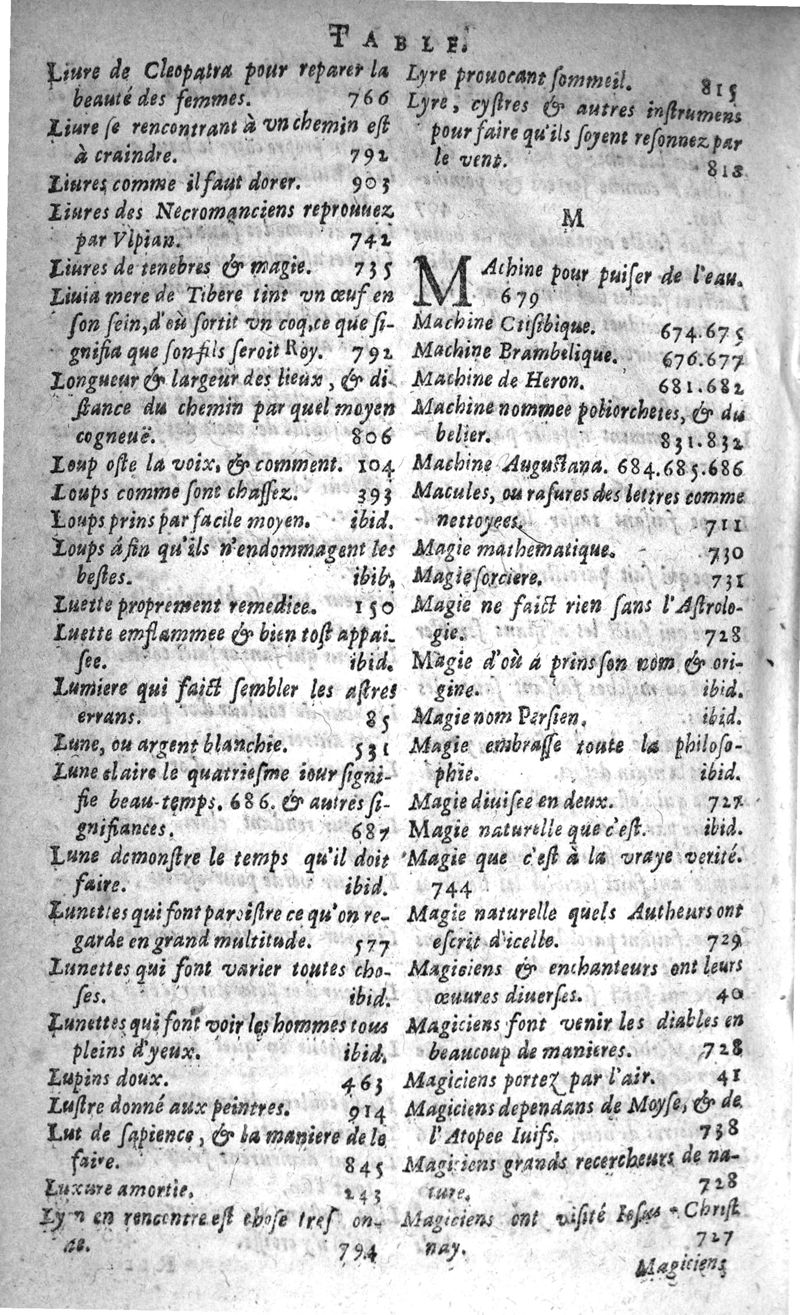 TABLE.
Liure de Cleopatra pour reparer la
beauté des femmes. 766
Liure se rencontrant à vn chemin est
à craindre. 792
Liures comme il faut dorer. 903
Liures des Necromanciens reprouuez
par Vlpian. 742
Liures de tenebres & magie. 735
Liuia mere de Tibere tint vn œuf en
son sein, d'où sortit vn coq, ce que si-
gnifia que son fils seroit Roy. 792
Longueur & largeur des lieux, & di-
stance du chemin par quel moyen
cogneuë. 806
Loup oste la voix, & comment. 104
Loups comme sont chassez. 393
Loups prins par facile moyen. ibid.
Loups áfin qu'ils n'endommagent les
bestes. ibib.
Luette proprement remedice. 150
Luette emflammee & bien tost appai-
see. ibid.
Lumiere qui faict sembler les astres
errans. 85
Lune, ou argent blanchie. 531
Lune claire le quatriesme iour signi-
fie beau-temps. 686. & autres si-
gnifiances. 687
Lune demonstre le temps qu'il doit
faire. ibid.
Lunettes qui font paroistre ce qu'on re-
garde en grand multitude. 577
Lunettes qui font varier toutes cho-
ses. ibid.
Lunettes qui font voir les hommes tous
pleins d'yeux. ibid.
Lupins doux. 463
Lustre donné aux peintres. 914
Lut de sapience, & la maniere de le
faire. 845
Luxure amortie. 243
Lyon en rencontre est chose tres on-
794
Lyre prouocant sommeil. 815
Lyre, cystres & autres instrumens
pour faire qu'ils soyent resonnez par
le vent. 818
M
MAchine pour puiser de l'eau.
679
Machine Ctisibique. 674.675
Machine Brambelique. 676.677
Machine de Heron. 681.682
Machine nommee poliorchetes, & du
belier. 831.832
Machine Augustana. 684.685.686
Macules, ou rasures des lettres comme
nettoyees. 711
Magie mathematique. 730
Magie sorciere. 731
Magie ne faict rien sans l'Astrolo-
gie. 728
Magie d'où á prins son nom & ori-
gine. ibid.
Magie nom Persien. ibid.
Magie embrasse toute la philoso-
phie. ibid.
Magie diuisee en deux. 727
Magie naturelle que c'est. ibid.
Magie que c'est à la vraye verité.
744
Magie naturelle quels Autheurs ont
escrit d'icelle. 729
Magiciens & enchanteurs ont leurs
œuures diuerses. 40
Magiciens font venir les diables en
beaucoup de manieres. 728
Magiciens portez par l'air. 41
Magiciens dependans de Moyse, & de
l'Atopee Iuifs. 738
Magiciens grands recercheurs de na-
ture. 728
Magiciens ont visité Iesus-Christ
nay. 727
Magiciens